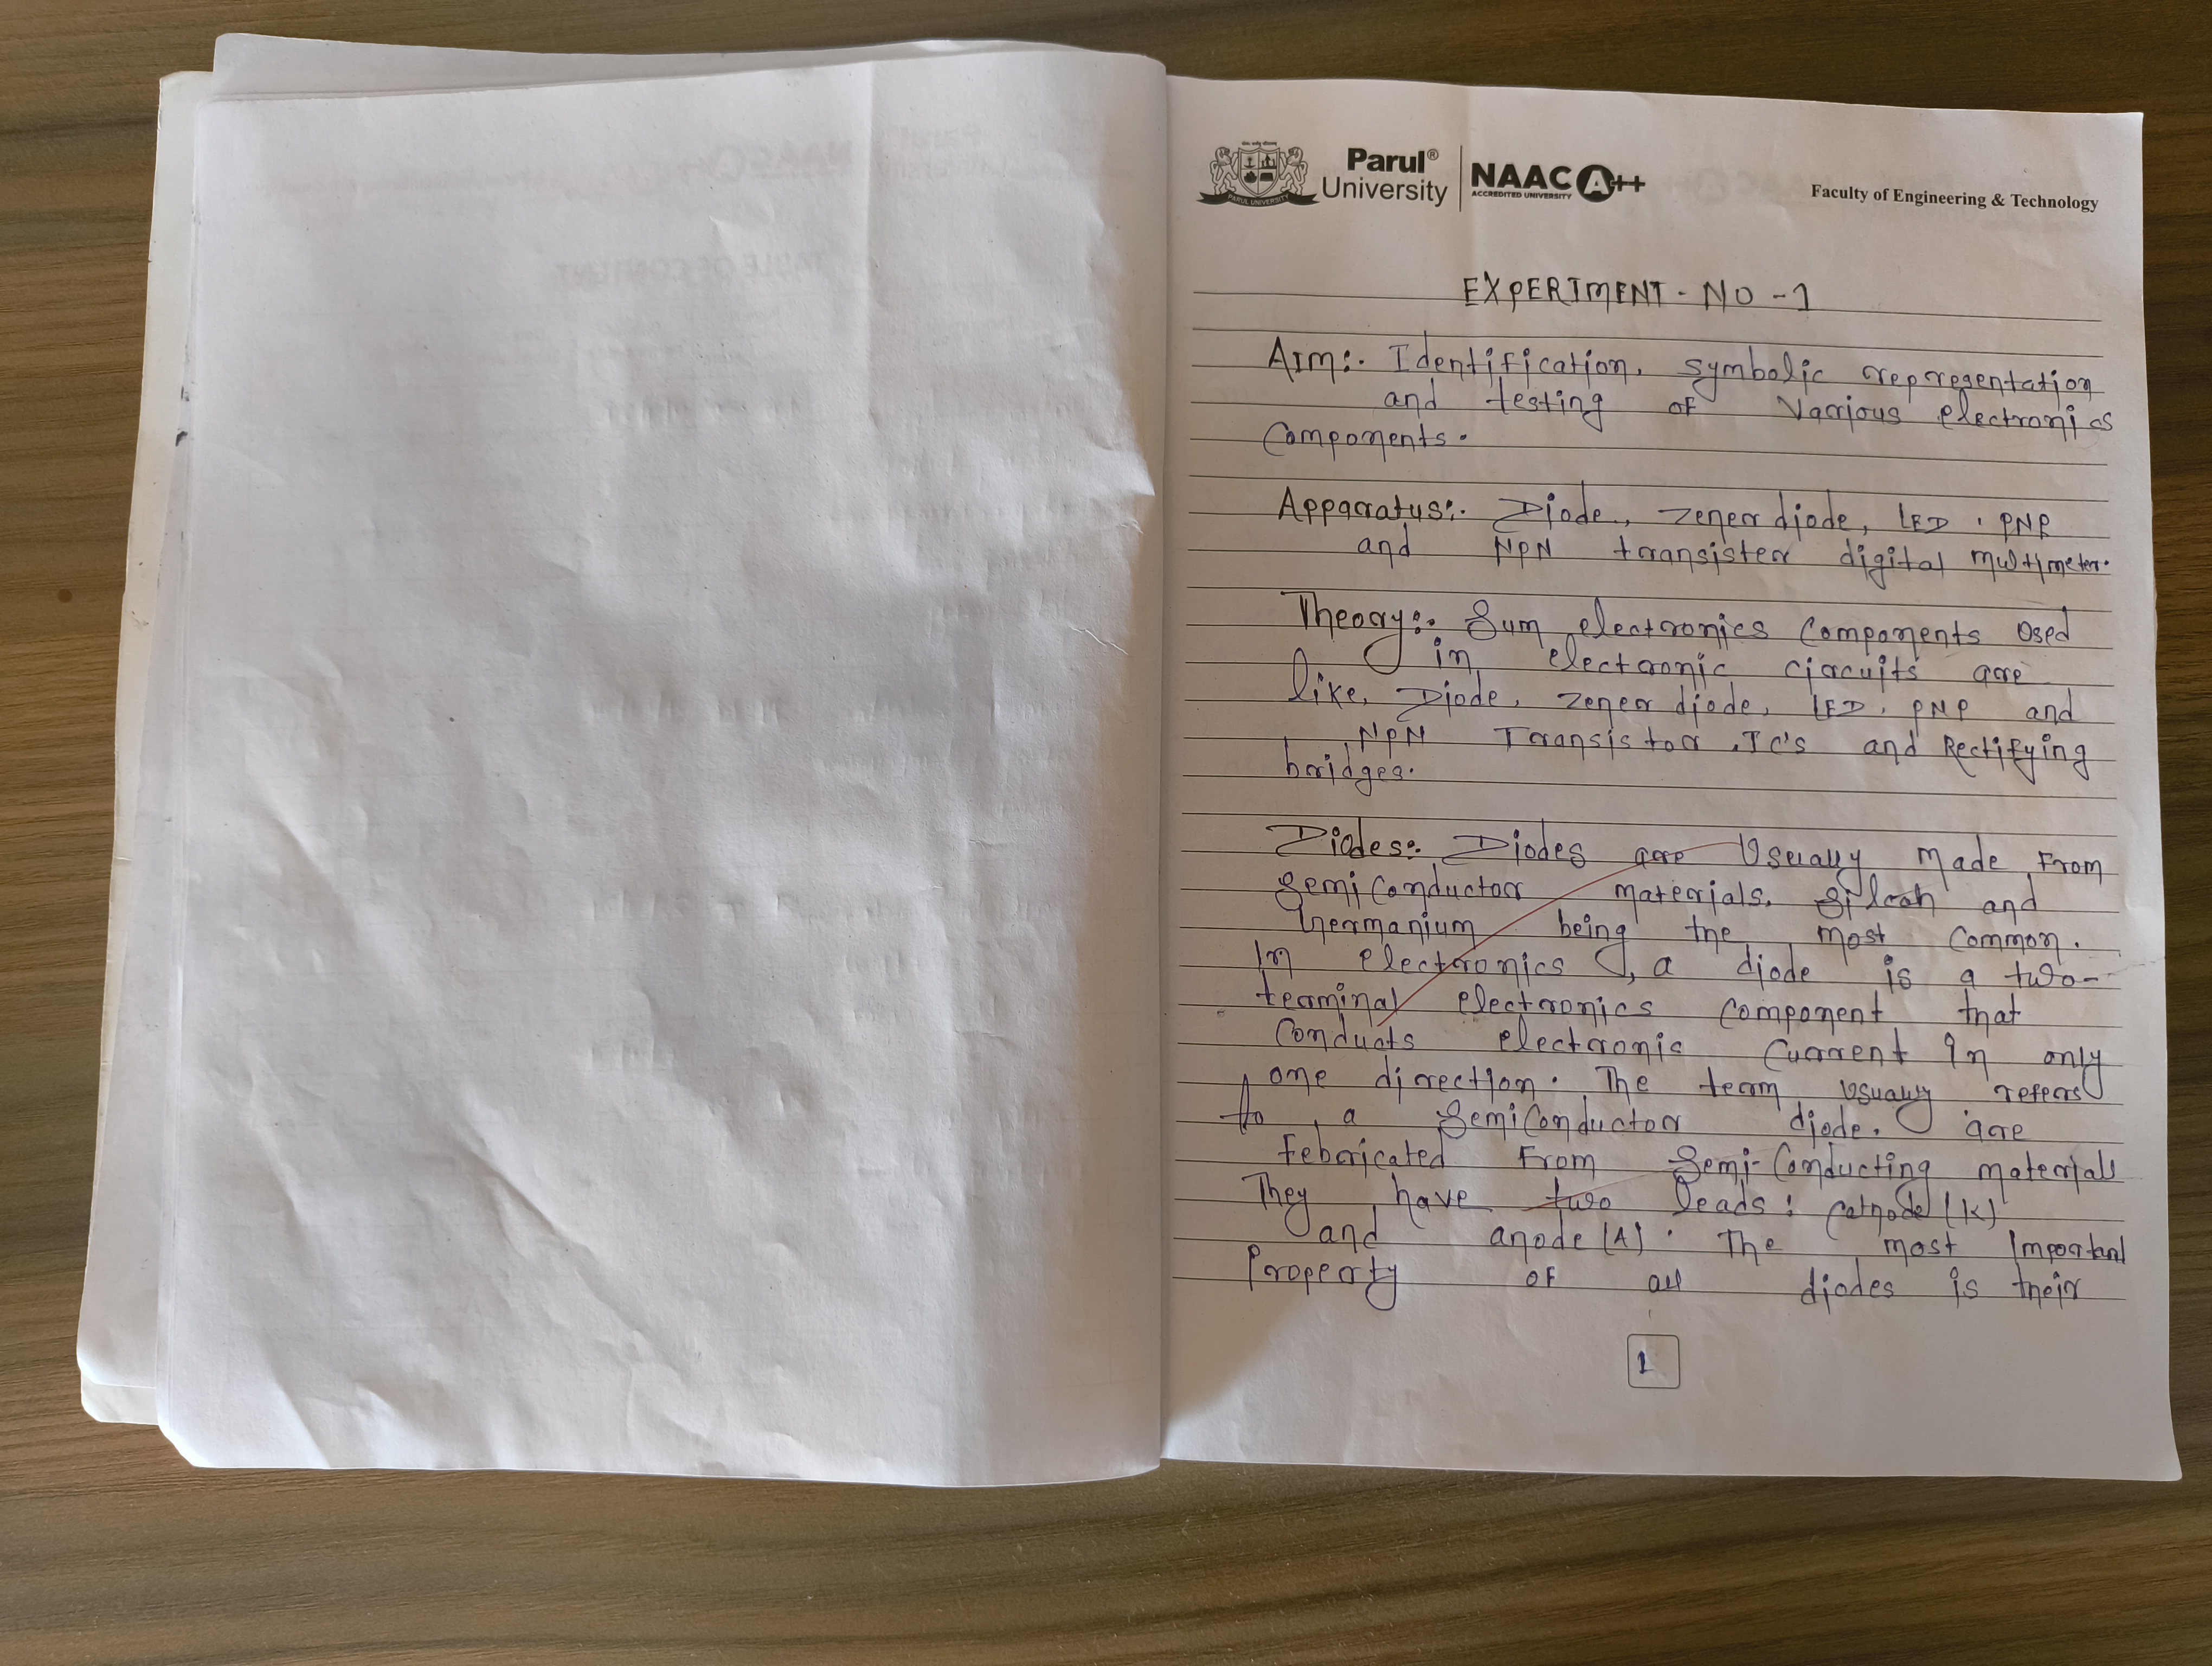 Parul® University
NAAC A++
ACCREDITED UNIVERSITY
PARUL UNIVERSITY
Faculty of Engineering & Technology
EXPERIMENT - NO - 1
AIM:- Identification, symbolic representation
and testing of various electronics
components.
Apparatus:- Diode, zener diode, LED, PNP
and NPN transister digital multimeter.
Theory:- Sum electronics components used
in electronic circuits are
like, Diode, zener diode, LED, PNP and
NPN Transistor, IC's and Rectifying
bridges.
Diodes:- Diodes are Usually made from
semiconductor materials, Silcon and
Germanium being the most common.
In electronics, a diode is a two-
terminal electronics component that
conducts electronic current in only
one direction. The term usually refers
to a semiconductor diode. are
Febricated From Semi-Conducting materials
They have two leads: cathode (K)
and anode (A). The most Important
Property of all diodes is their
1
TABLE OF CONTENT